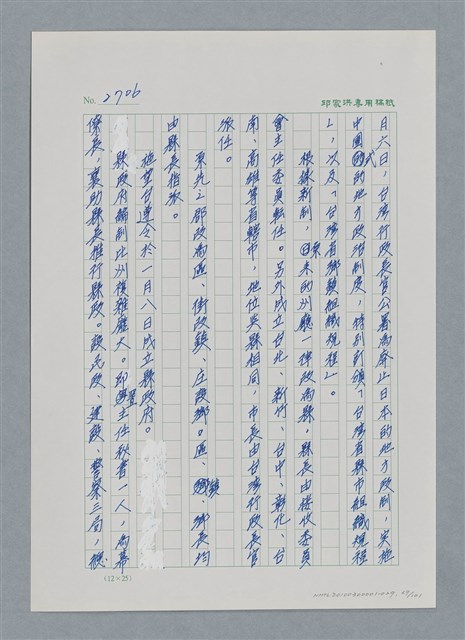 No. 2706
邱家洪專用稿紙
月六日，台灣行政長官公署為廢止日本的地方政制，實施
中國式的地方政治制度，特別制頒「台灣省縣市組織規程
」，以及「台灣省鄉鎮組織規程」。
根據新制，原來的州廳一律改為縣，縣長由接收委員
會主任委員轉任。另外成立台北、新竹、台中、彰化、台
南、高雄等省轄市，地位與縣相同，市長由台灣行政長官
派任。
原先之郡改為區、街改鎮、庄改鄉。區、鎮、鄉長均
由縣長指派。
施望台遵令於一月八日成立縣政府。
縣政府編制比州複雜龐大。即置主任秘書一人，為幕
僚長，襄助縣長推行縣政。設民政、建設、警察三局，
(12×25)